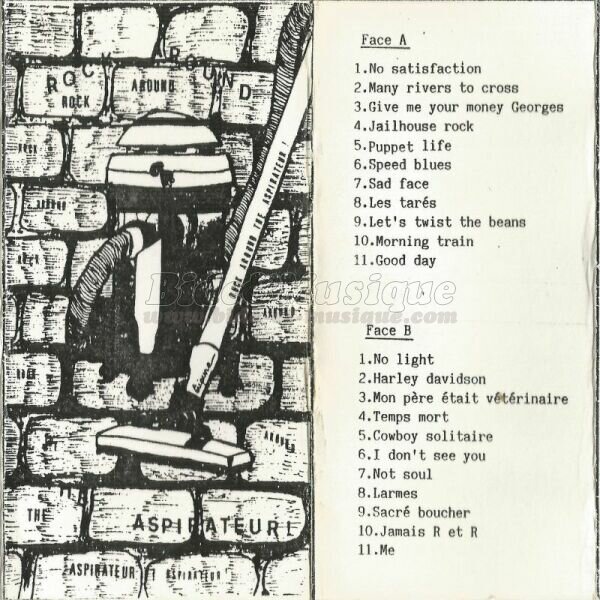 ROCK ROUND
ROCK
AROUND
ROCK
AROUND
ROCK
AROUND
ROCK AROUND THE ASPIRATEUR !
AROUND
THE
THE
ASPIRATEUR !
ASPIRATEUR ! ASPIRATEUR !
Bide&Musique
www.bide-et-musique.com
Face A
1.No satisfaction
2.Many rivers to cross
3.Give me your money Georges
4.Jailhouse rock
5.Puppet life
6.Speed blues
7.Sad face
8.Les tarés
9.Let's twist the beans
10.Morning train
11.Good day
Face B
1.No light
2.Harley davidson
3.Mon père était vétérinaire
4.Temps mort
5.Cowboy solitaire
6.I don't see you
7.Not soul
8.Larmes
9.Sacré boucher
10.Jamais R et R
11.Me